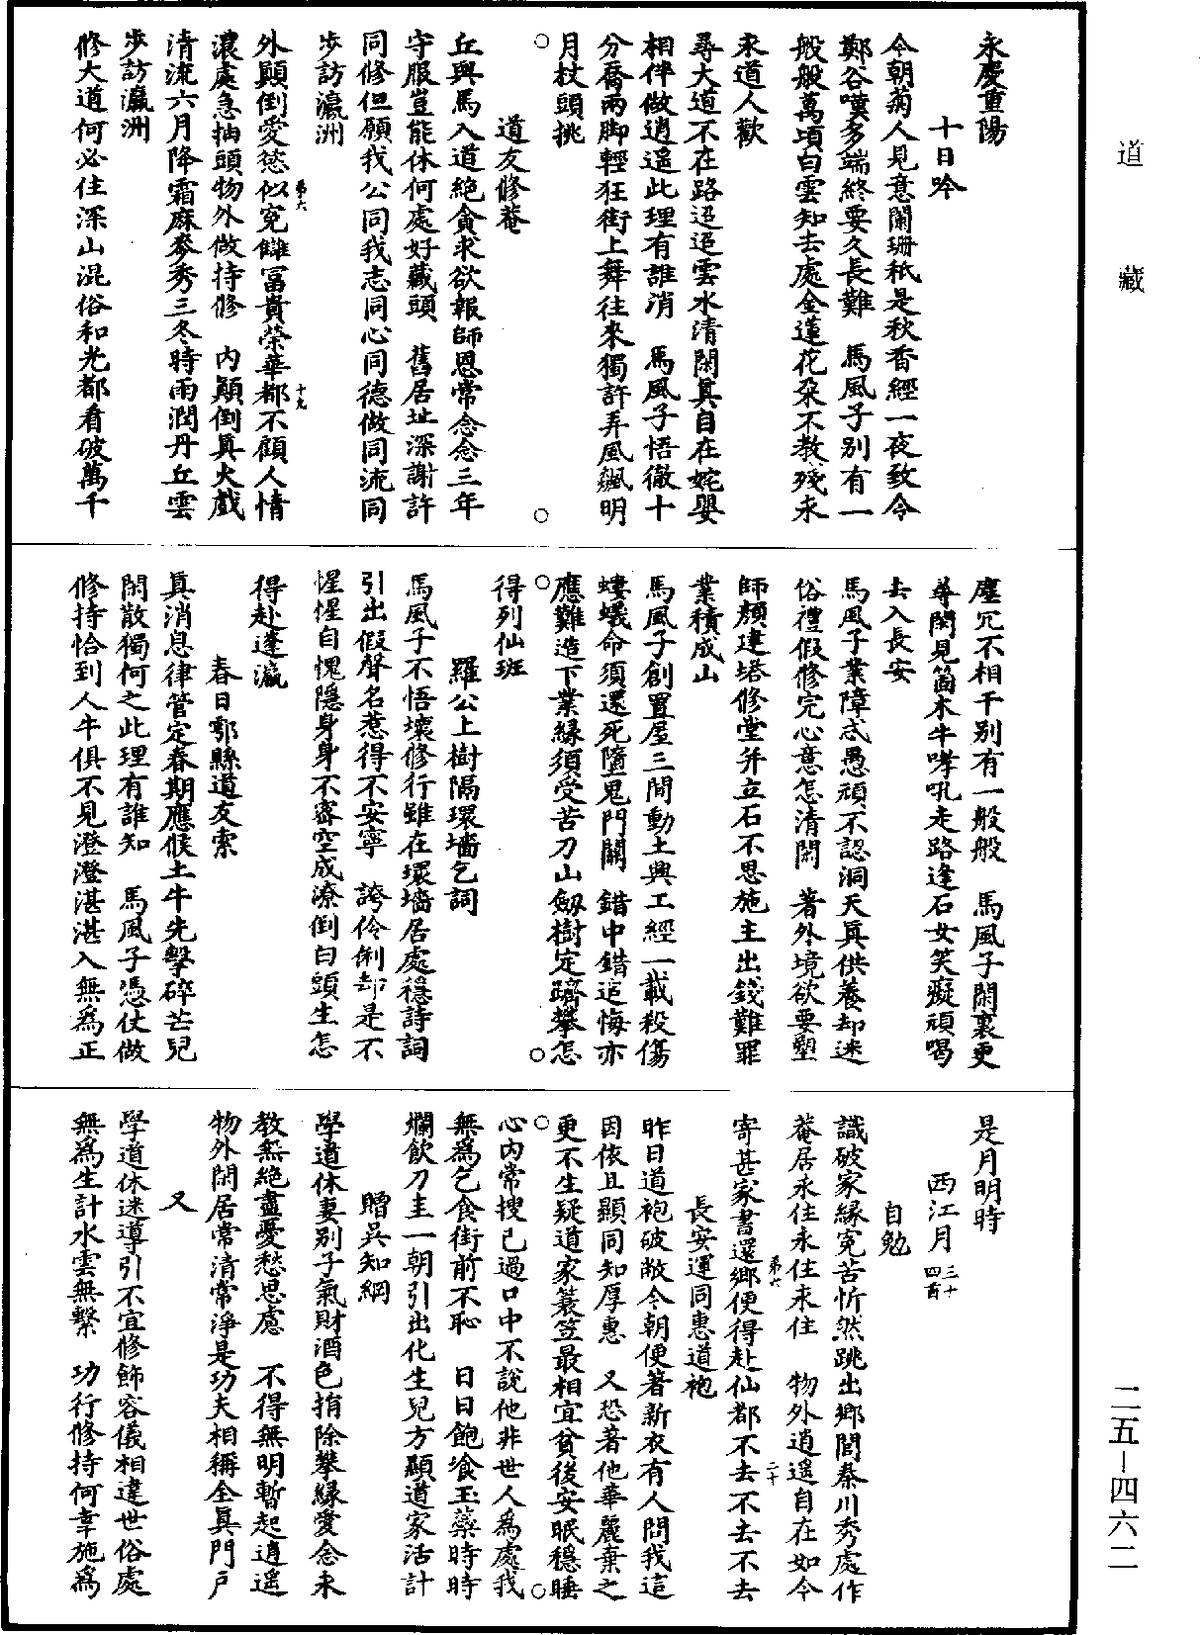 道藏
永慶重陽
十日吟
今朝菊人見意闌珊秖是秋香經一夜致令
鄭谷嘆多端終要久長難　馬風子别有一
般般萬頃白雲知去處金蓮花朶不教殘永
永道人歡
尋大道不在路迢迢雲水清閑眞自在姹嬰
相伴做逍遥此理有誰消　馬風子悟徹十
分喬兩脚輕狂街上舞往來獨許弄風飆明
月杖頭挑
○　○
道友修菴
丘與馬入道絶貪求欲報師恩常念念三年
守服豈能休何處好藏頭　舊居址深謝許
同修但願我公同我志同心同德做同流同
步訪瀛洲
第六　十九
外顛倒愛慾似寃讎冨貴榮華都不顧人情
濃處急抽頭物外做持修　内顛倒眞火戲
清流六月降霜麻麥秀三冬時雨潤丹丘雲
步訪瀛洲
修大道何必住深山混俗和光都看破萬千
塵冗不相干别有一般般　馬風子閑裏更
尋閑見箇木牛哮吼走路逢石女笑癡頑喝
去入長安
馬風子業障忒愚頑不認洞天眞供養却迷
俗禮假修完心意怎清閑　著外境欲要塑
師顔建塔修堂并立石不思施主出錢難罪
業積成山
馬風子創置屋三間動土興工經一載殺傷
螻蟻命須還死墮鬼門關　錯中錯追悔亦
應難造下業縁須受苦刀山劔樹定躋攀怎
○　○
得列仙班
羅公上樹隔環墻乞詞
馬風子不悟壞修行雖在環墻居處穩詩詞
引出假聲名惹得不安寧　誇伶俐却是不
惺惺自愧隱身身不密空成潦倒白頭生怎
得赴蓬瀛
春日鄠縣道友索
眞消息律管定春期應候土牛先擊碎芒兒
閑散獨何之此理有誰知　馬風子憑仗做
修持恰到人牛俱不見澄澄湛湛入無爲正
是月明時
西江月三十四首
自勉
識破家縁寃苦忻然跳出鄉閭秦川秀處作
菴居永住永住永住　物外逍遥自在如今
寄甚家書還鄉便得赴仙都不去不去不去
第六　二十
長安運同惠道袍
昨日道袍破敝今朝便著新衣有人問我這
因依且顯同知厚惠　又恐著他華麗棄之
更不生疑道家簑笠最相宜貧後安眠穩睡
○　○
心内常搜己過口中不説他非世人爲處我
無爲乞食街前不恥　日日飽飡玉蘂時時
爛飲刀圭一朝引出化生兒方顯道家活計
贈吳知綱
學道休妻别子氣財酒色捐除攀縁愛念未
教無絶盡憂愁思慮　不得無明暫起逍遥
物外閑居常清常淨是功夫相稱全眞門戸
又
學道休迷導引不宜修飾容儀相違世俗處
無爲生計水雲無繫　功行修持何幸施爲
二五-四六二